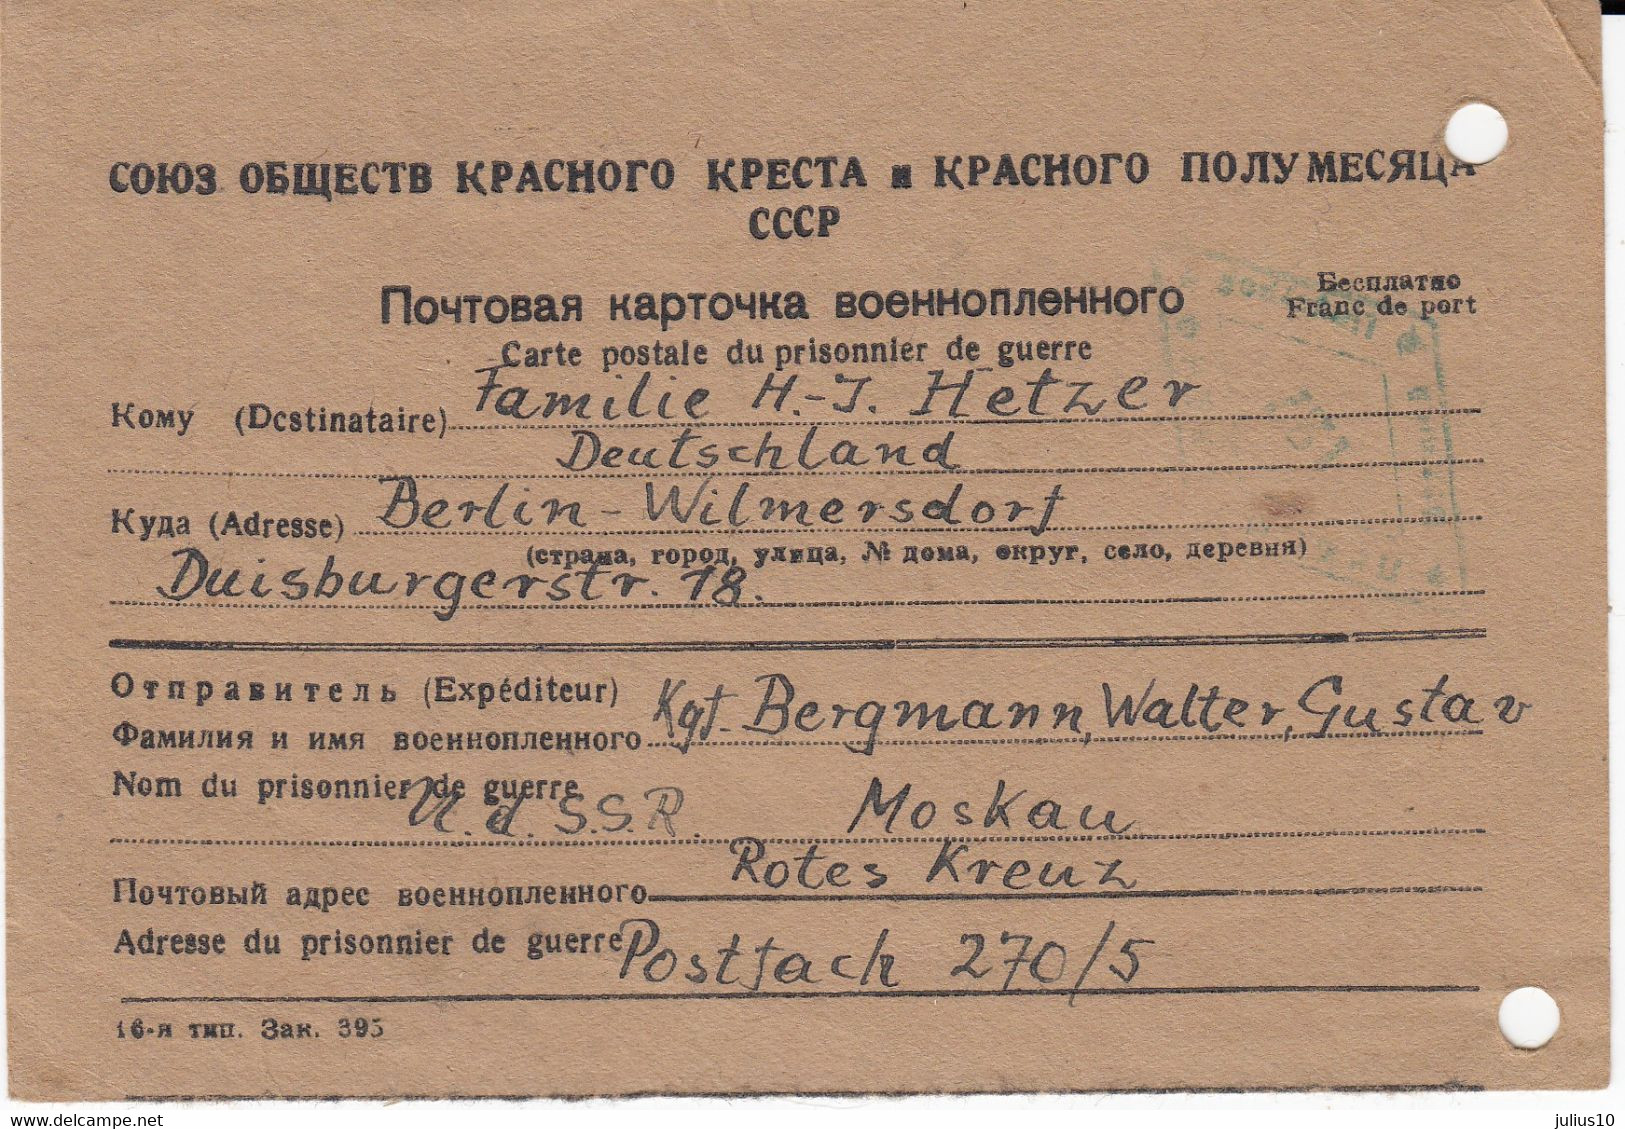 СОЮЗ ОБЩЕСТВ КРАСНОГО КРЕСТА и КРАСНОГО ПОЛУМЕСЯЦА
СССР
Почтовая карточка военнопленного
Бесплатно
Franc de port
Carte postale du prisonnier de guerre
Кому (Destinataire) Familie H.-J. Hetzer
Deutschland
Куда (Adresse) Berlin-Wilmersdorf
(страна, город, улица, № дома, округ, село, деревня)
Duisburgerstr. 18.
Отправитель (Expéditeur)
Фамилия и имя военнопленного Kgf. Bergmann, Walter, Gustav
Nom du prisonnier de guerre
U.d.S.S.R. Moskau
Rotes Kreuz
Почтовый адрес военнопленного
Adresse du prisonnier de guerre Postfach 270/5
16-я тип. Зак. 395
www.delcampe.net
julius10